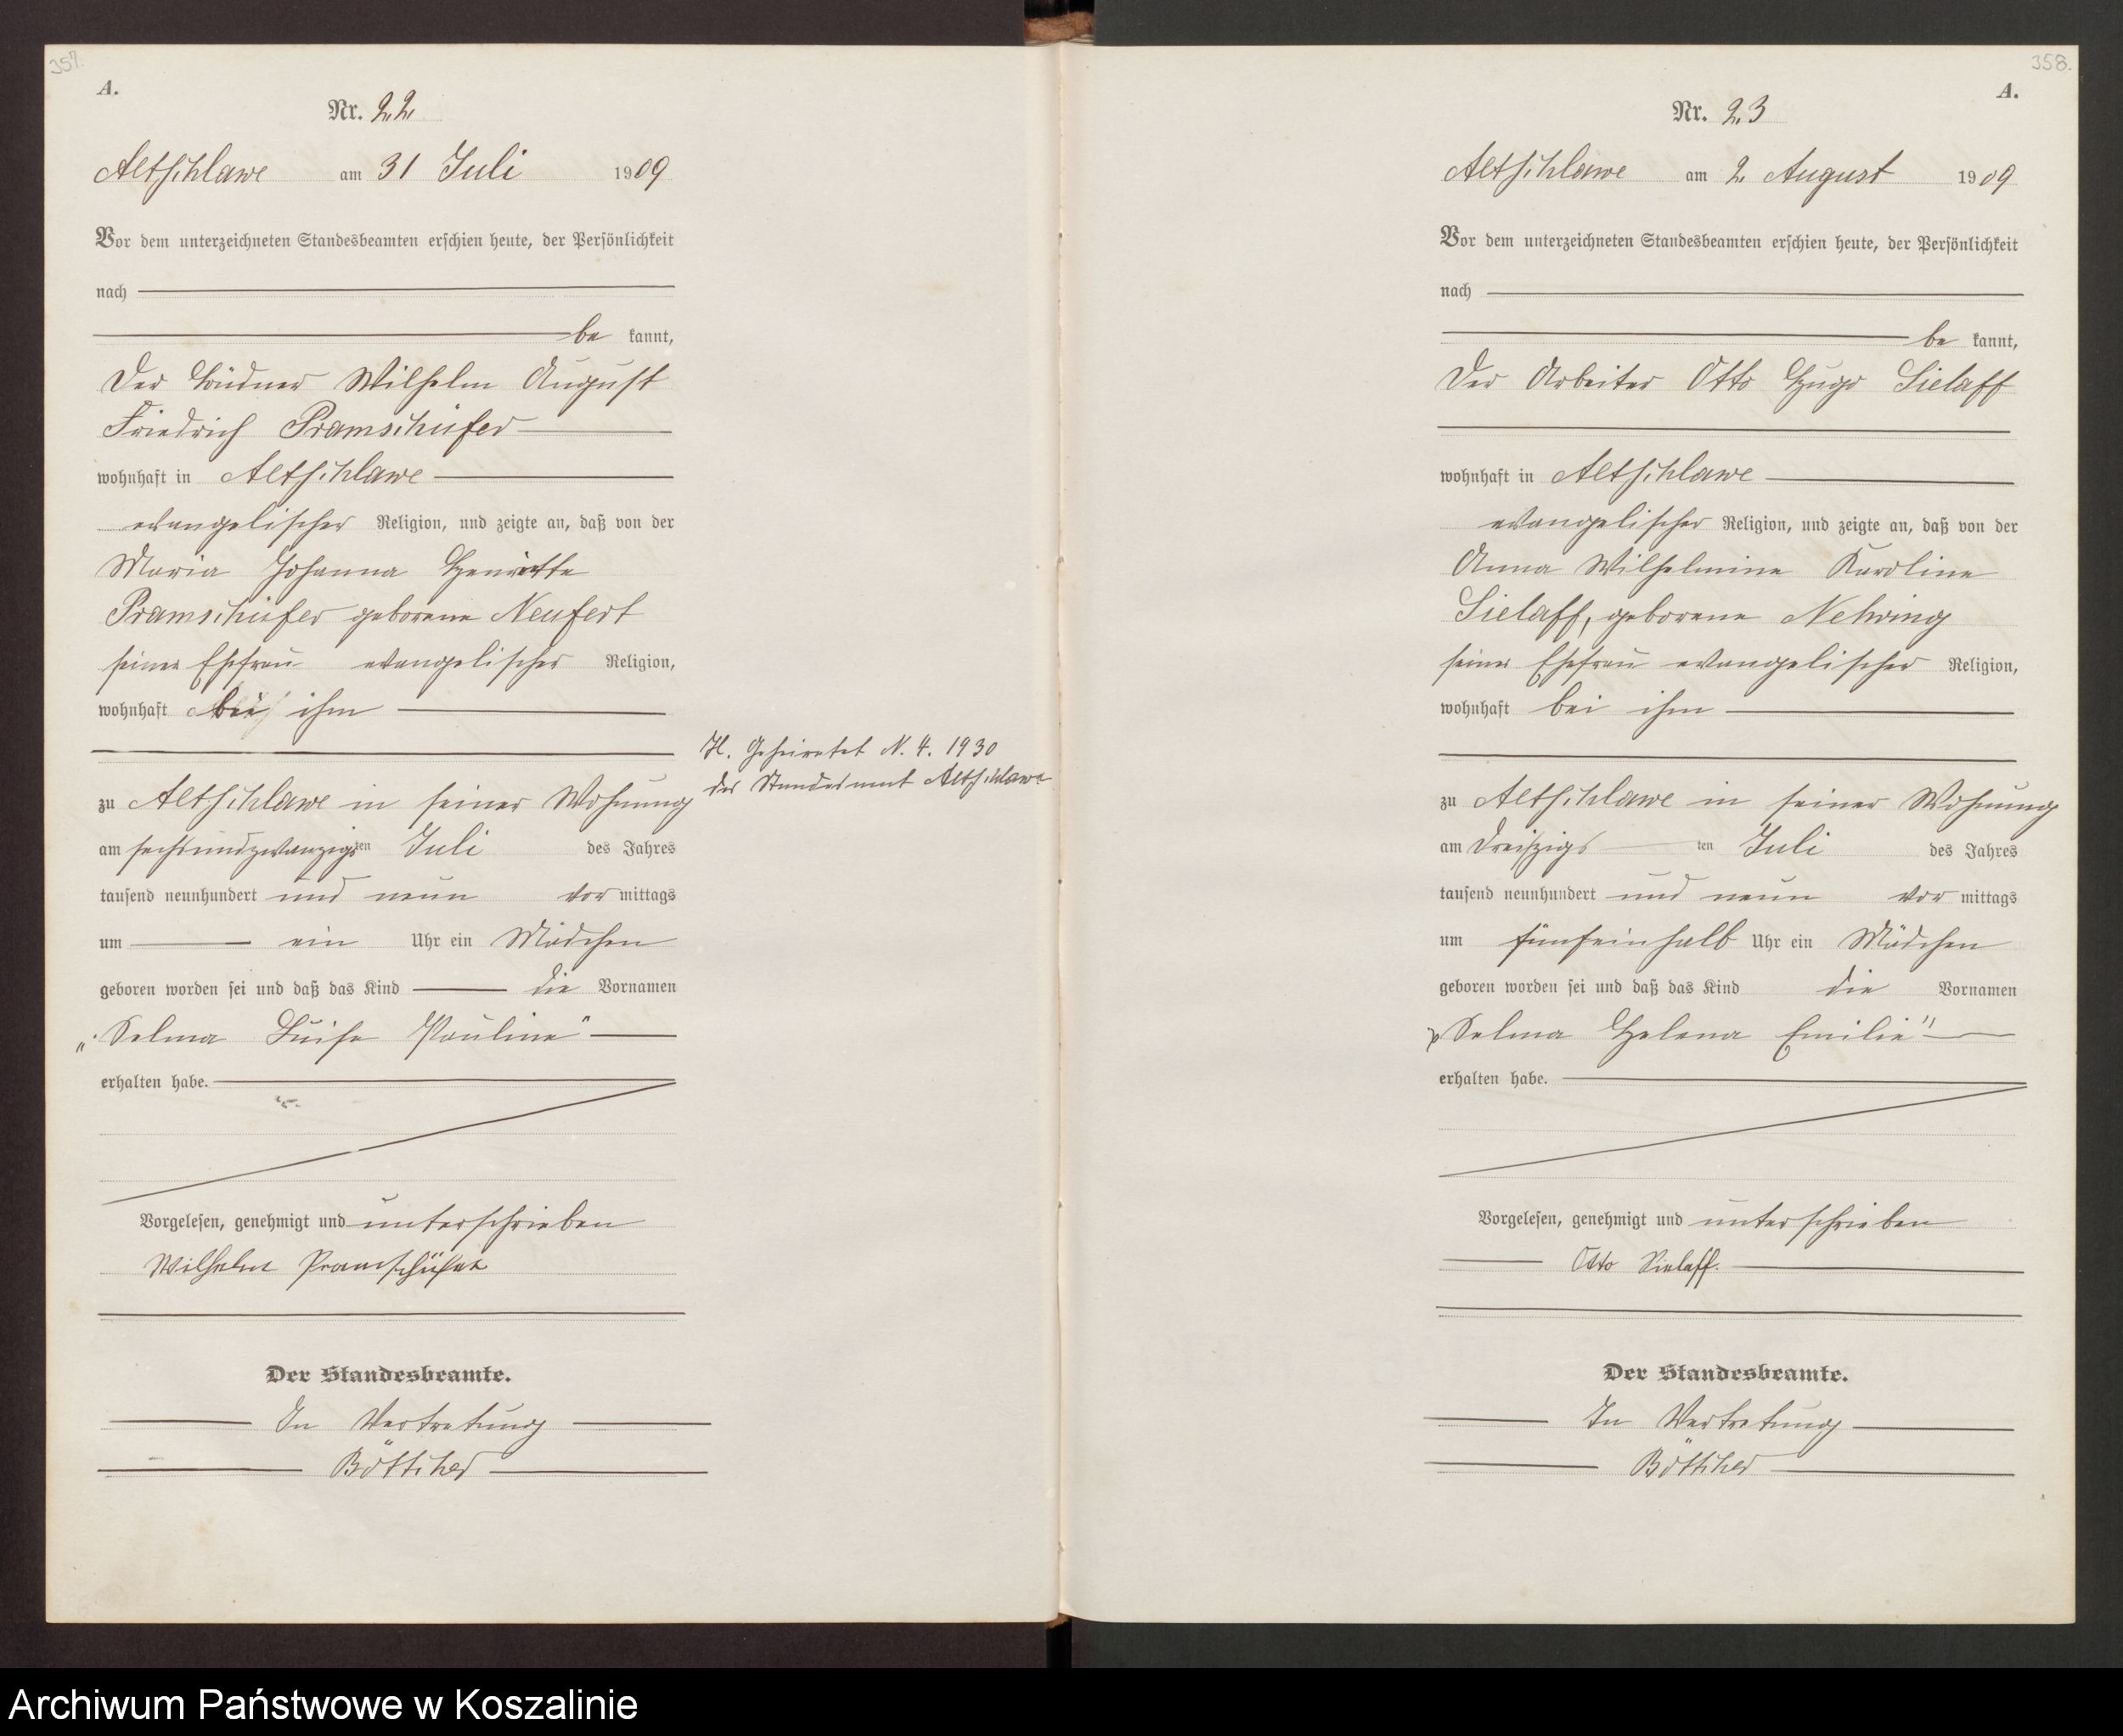 357.
A.
Nr. 22
Altschlawe am 31 Juli 1909
Vor dem unterzeichneten Standesbeamten erschien heute, der Persönlichkeit
nach
be kannt,
der Büdner Wilhelm August
Friedrich Pramschüfer
wohnhaft in Altschlawe
evangelischer Religion, und zeigte an, daß von der
Maria Johanna Henriette
Pramschüfer geborene Neufert
seiner Ehefrau evangelischer Religion,
wohnhaft bei ihm
zu Altschlawe in seiner Wohnung
am sechsundzwanzigsten Juli des Jahres
tausend neunhundert und neun vor mittags
um ein Uhr ein Mädchen
geboren worden sei und daß das Kind die Vornamen
„Selma Luise Pauline“
erhalten habe.
Vorgelesen, genehmigt und unterschrieben
Wilhelm Pramschüfer
Der Standesbeamte.
In Vertretung
Böttcher
H. Geheiratet N. 4. 1930
des Standesamt Altschlawe
358.
A.
Nr. 23
Altschlawe am 2 August 1909
Vor dem unterzeichneten Standesbeamten erschien heute, der Persönlichkeit
nach
be kannt,
der Arbeiter Otto Hugo Sielaff
wohnhaft in Altschlawe
evangelischer Religion, und zeigte an, daß von der
Anna Wilhelmine Karoline
Sielaff, geborene Nehring
seiner Ehefrau evangelischer Religion,
wohnhaft bei ihm
zu Altschlawe in seiner Wohnung
am dreißigs ten Juli des Jahres
tausend neunhundert und neun vor mittags
um fünfeinhalb Uhr ein Mädchen
geboren worden sei und daß das Kind die Vornamen
„Selma Helena Emilie“
erhalten habe.
Vorgelesen, genehmigt und unterschrieben
Otto Sielaff.
Der Standesbeamte.
In Vertretung
Böttcher
Archiwum Państwowe w Koszalinie